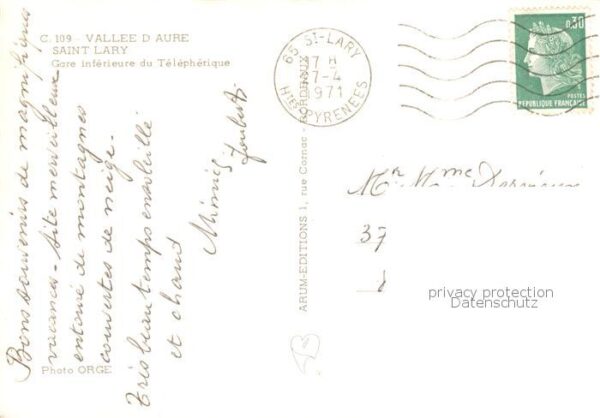 C. 109 - VALLEE D AURE
SAINT LARY
Gare inférieure du Téléphérique
Bons souvenirs de magnifiques
vacances - Site merveilleux
entouré de montagnes
couvertes de neige.
Très beau temps ensoleillé
et chaud
Mimi
Joubert
Photo ORGE
ARUM-EDITIONS 1, rue Cornac - BORDEAUX
65 St-LARY
17 H
7-4
1971
Htes PYRENEES
0,30
POSTES
REPUBLIQUE FRANÇAISE
Mr Mme
37
privacy protection
Datenschutz